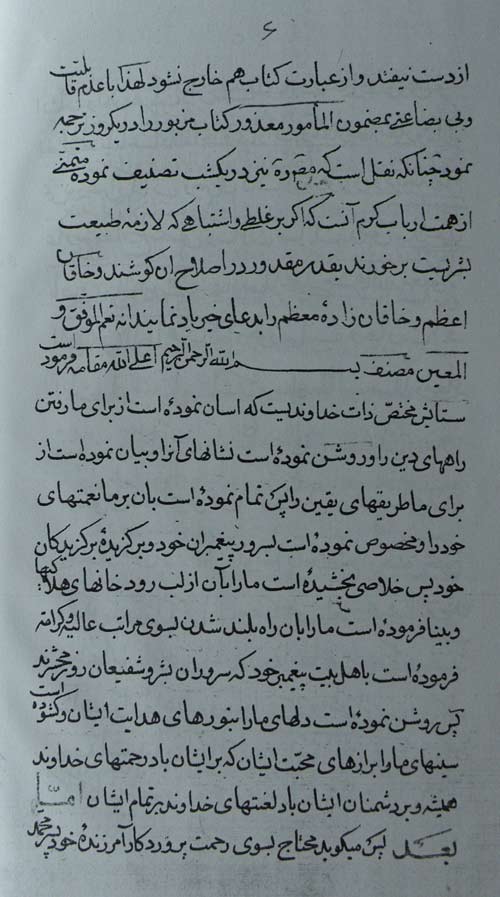 ۶
از دست نیفتد و از عبارت کتاب هم خارج نشود لهذا با عدم قابلیت
و بی بضاعتی بمضمون المأمور معذور کتاب مزبور را در یکروز ترجمه
نمود چنانکه نقل است که در یکشب تصنیف نموده متمنی
از همت ارباب کرم آنست که اکر بر غلطی و اشتباهی که لازمهٔ طبیعت
بشریت برخورند بقدر مقدور در اصلاح ان کوشند و خاقان
اعظم و خاقان زادهٔ معظم را بدعای خیر یاد نمایند انه نعم الموفق و
المعین مصنف اعلی الله مقامه فرموده است بسم الله الرحمن الرحیم
ستایش مختص ذات خداوندیست که اسان نموده است از برای ما رفتن
راههای دین را و روشن نموده است نشانهای آنرا و بیان نموده است از
برای ما طریقهای یقین را پس تمام نموده است بان بر ما نعمتهای
خود را و مخصوص نموده است بسرور پیغمبران خود و برکزیدهٔ برکزیدکان
خود پس خلاصی بخشیده است ما را بآن از لب رودخانهای هلاکیها
و بینا فرموده است ما را بان راه بلند شدن بسوی مراتب عالیه و کرامت
فرموده است باهل بیت پیغمبر خود که سروران بشر و شفیعان روز محشرند
پس روشن نموده است دلهای ما را بنورهای هدایت ایشان و کشوده است
سینهای ما را برازهای محبت ایشان که بر ایشان باد رحمتهای خداوند
همیشه و بر دشمنان ایشان باد لعنتهای خداوند بر تمام ایشان
بعد پس میکوید محتاج بسوی رحمت پروردکار آمرزندهٔ خود پسر محمد